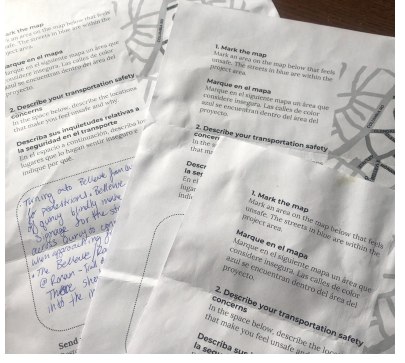 ark the map
k an area on the map below that feels
afe. The streets in blue are within the
ject area.
arque en el mapa
arque en el siguiente mapa un área que
onsidere insegura. Las calles de color
zul se encuentran dentro del área del
proyecto.
2. Describe your transportation safety
concerns
In the space below, describe the locations
that make you feel unsafe and why.
Describa sus inquietudes relativas a
la seguridad en el transporte
En el espacio a continuación, describa los
lugares que lo hagan sentir inseguro e
indique por qué.
Turning onto Bellevue
for pedestrians. Bellevue
of quincy
across Quincy to
when approaching
The Bellevue
@ Roman
There
into the in
Send
1. Mark the map
Mark an area on the map below that feels
unsafe. The streets in blue are within the
project area.
Marque en el mapa
Marque en el siguiente mapa un área que
considere insegura. Las calles de color
azul se encuentran dentro del área del
proyecto.
2. Describe your transportation safety
concer
In the
that m
Descr
la se
En el
luga
indi
1. Mark the map
Mark an area on the map below that feels
unsafe. The streets in blue are within the
project area.
Marque en el mapa
Marque en el siguiente mapa un área que
considere insegura. Las calles de color
azul se encuentran dentro del área del
proyecto.
2. Describe your transportation safety
concerns
In the space below, describe the loc
that make you feel unsafe and
Describa sus in
la segu